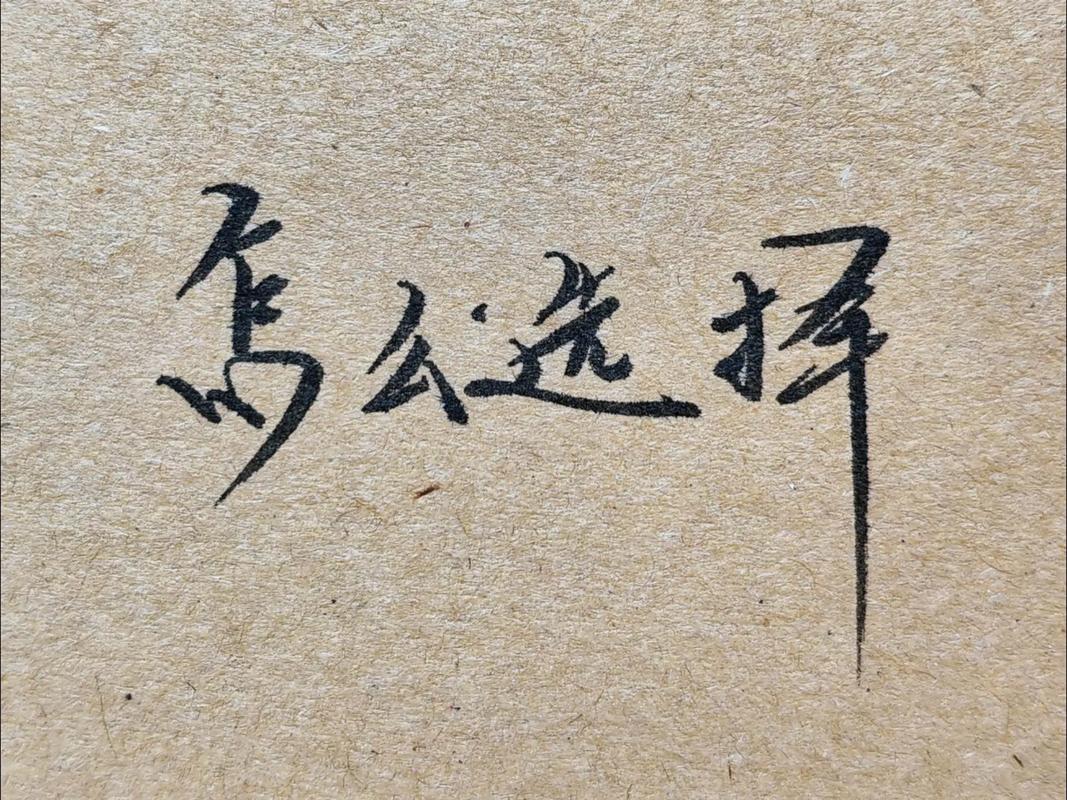 怎么选择